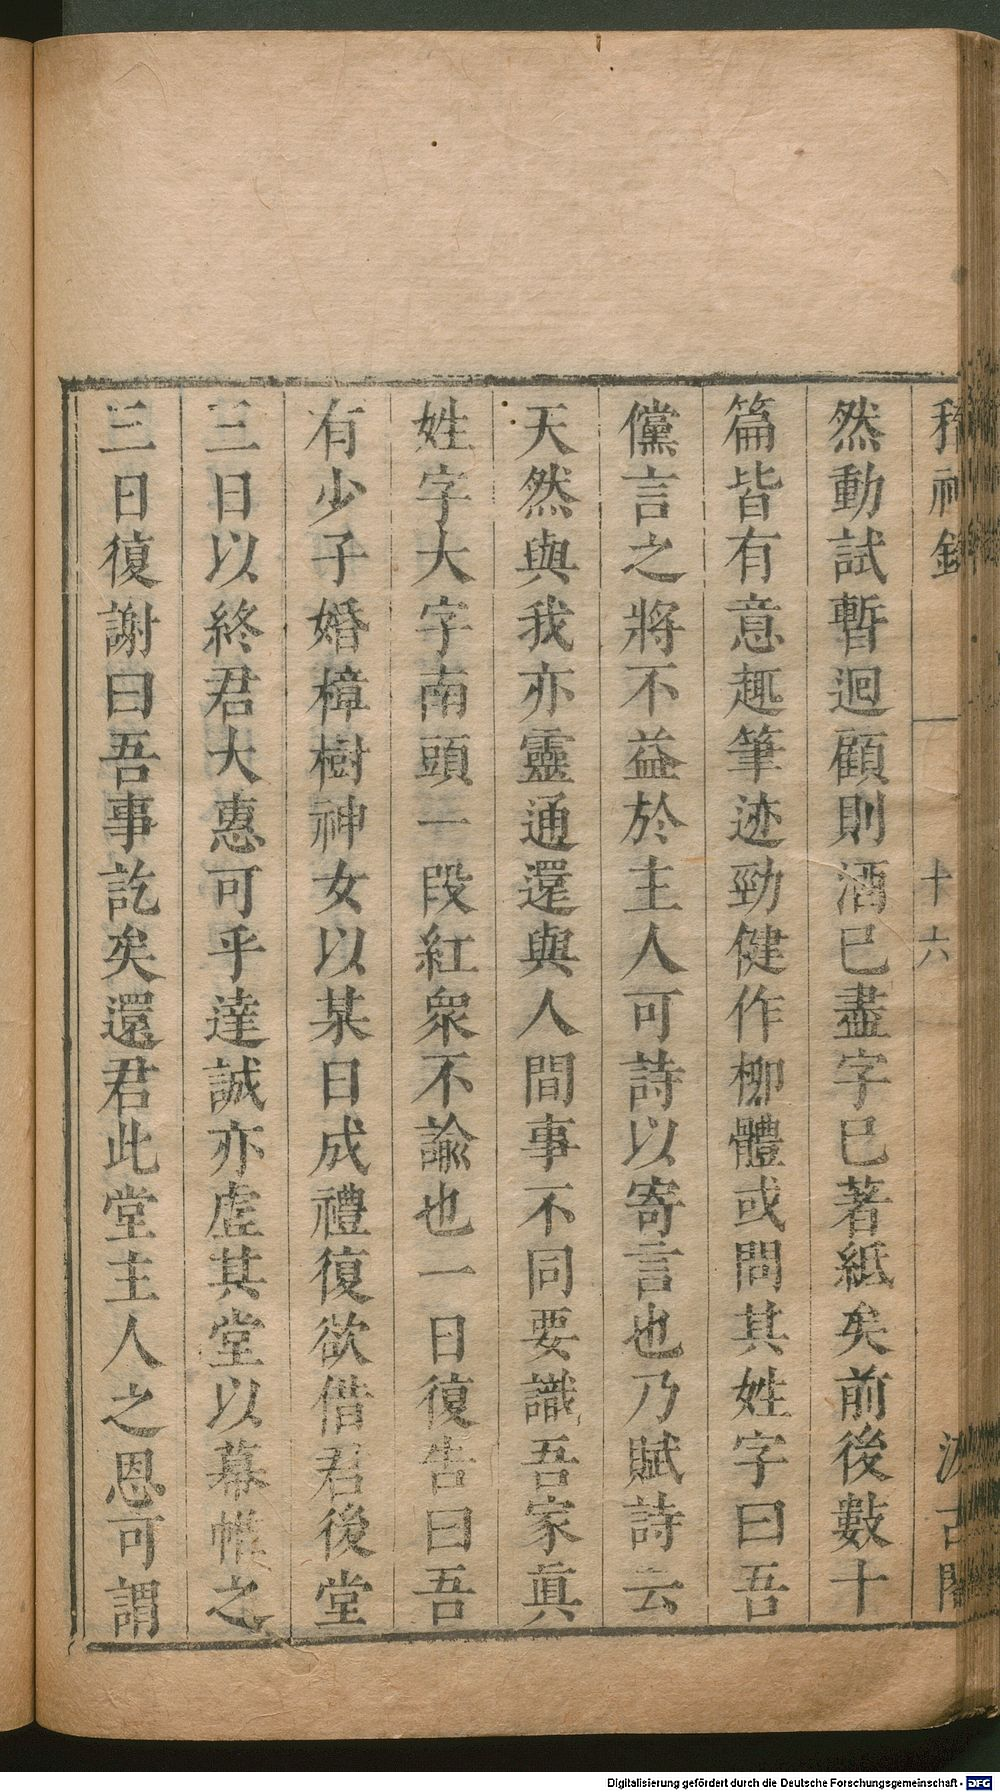 稽神錄 十六 汲古閣
然動試暫迴顧則酒已盡字已著紙矣前後數十
篇皆有意趣筆迹勁健作柳體或問其姓字曰吾
儻言之將不益於主人可詩以寄言也乃賦詩云
天然與我亦靈通還與人間事不同要識吾家眞
姓字大字南頭一段紅衆不諭也一日復告曰吾
有少子婚樟樹神女以某日成禮復欲借君後堂
三日以終君大惠可乎達誠亦虛其堂以幕帷之
三日復謝曰吾事訖矣還君此堂主人之恩可謂
Digitalisierung gefördert durch die Deutsche Forschungsgemeinschaft - DFG